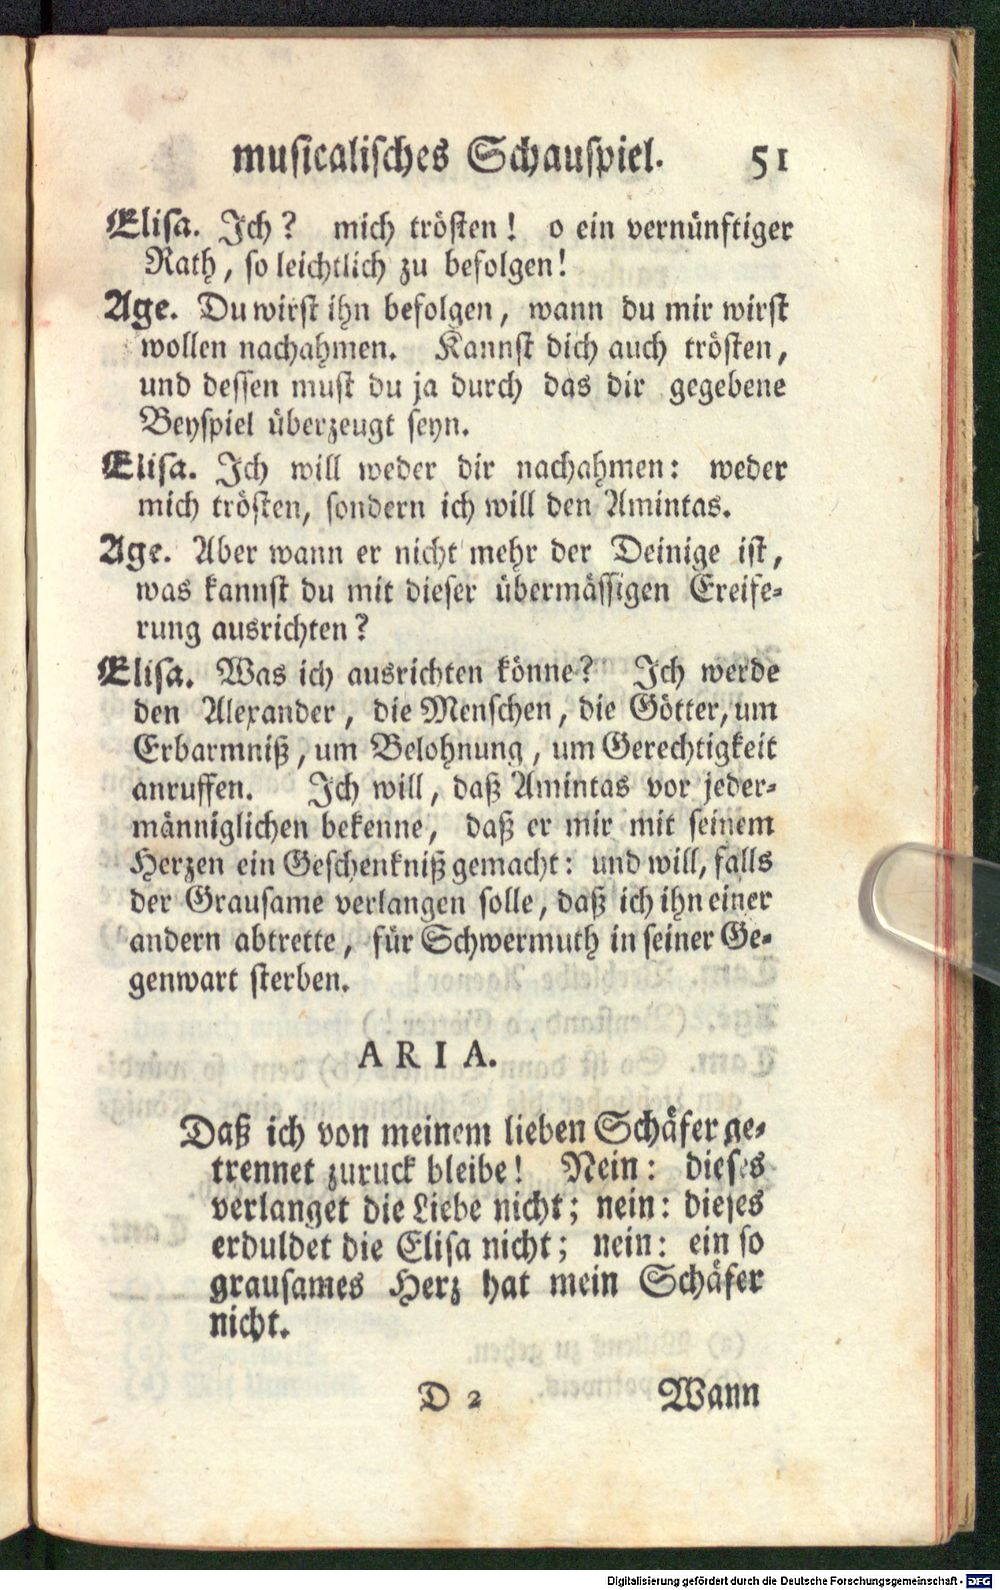 musicalisches Schauspiel. 51
Elisa. Ich? mich trösten! o ein vernünftiger
Rath, so leichtlich zu befolgen!
Age. Du wirst ihn befolgen, wann du mir wirst
wollen nachahmen. Kannst dich auch trösten,
und dessen must du ja durch das dir gegebene
Beyspiel überzeugt seyn.
Elisa. Ich will weder dir nachahmen: weder
mich trösten, sondern ich will den Amintas.
Age. Aber wann er nicht mehr der Deinige ist,
was kannst du mit dieser übermässigen Ereife-
rung ausrichten?
Elisa. Was ich ausrichten könne? Ich werde
den Alexander, die Menschen, die Götter, um
Erbarmniß, um Belohnung, um Gerechtigkeit
anruffen. Ich will, daß Amintas vor jeder-
männiglichen bekenne, daß er mir mit seinem
Herzen ein Geschenkniß gemacht: und will, falls
der Grausame verlangen solle, daß ich ihn einer
andern abtrette, für Schwermuth in seiner Ge-
genwart sterben.
ARIA.
Daß ich von meinem lieben Schäfer ge-
trennet zuruck bleibe! Nein: dieses
verlanget die Liebe nicht; nein: dieses
erduldet die Elisa nicht; nein: ein so
grausames Herz hat mein Schäfer
nicht.
D 2 Wann
Digitalisierung gefördert durch die Deutsche Forschungsgemeinschaft - DFG